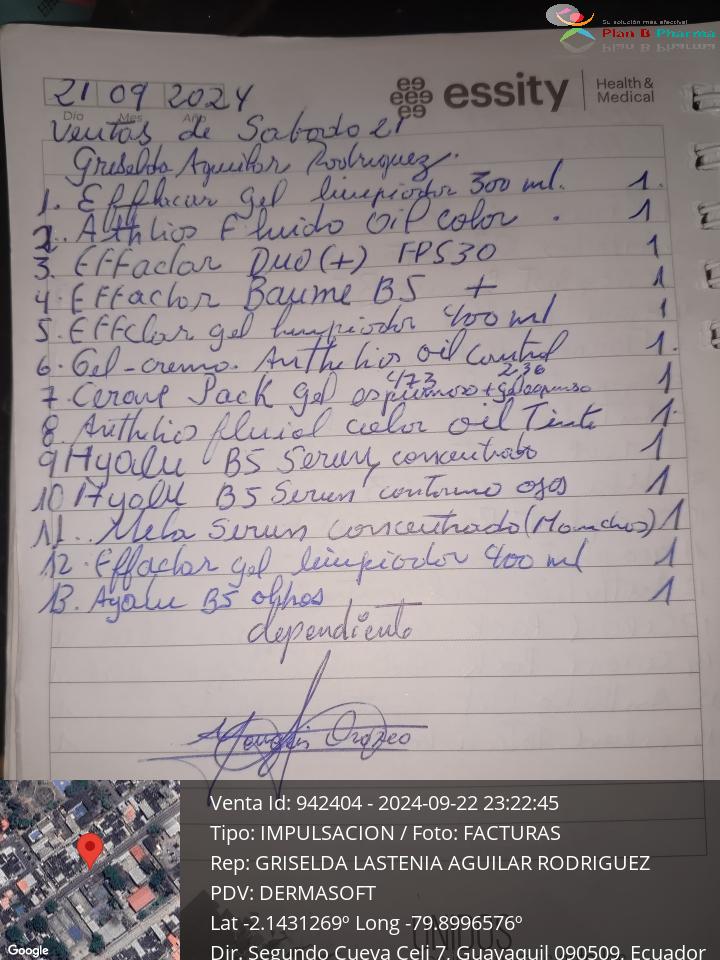 Su solución más efectiva!
Plan B Pharma
21 09 2024
Día Mes Año
essity
Health &
Medical
Ventas de Sabado 21
Griselda Aguilar Rodriguez.
1. Efflacar gel limpiador 300 ml. 1.
2. Athlios Fluido Oil color . 1
3. Effaclar Duo (+) FPS30 1
4. Effaclar Baume B5 + 1
5. Effclar gel limpiador 400 ml 1
6. Gel-crema. Anthelios oil control 1.
473 2,36
7. Cerave Pack gel espumoso + gel espumoso 1
8. Anthelios fluid color oil Tinte 1.
9 Hyalu B5 Serum concentrado 1
10 Hyalu B5 Serum contorno ojos 1
11.. Mela Serum concentrado (Manchas) 1
12. Effaclar gel limpiador 400 ml 1
13. Ayalu B5 ohhos 1
dependiente
Orozco
Venta Id: 942404 - 2024-09-22 23:22:45
Tipo: IMPULSACION / Foto: FACTURAS
Rep: GRISELDA LASTENIA AGUILAR RODRIGUEZ
PDV: DERMASOFT
Lat -2.1431269º Long -79.8996576º
UNIDOS
Dir. Segundo Cueva Celi 7, Guayaquil 090509, Ecuador
Google